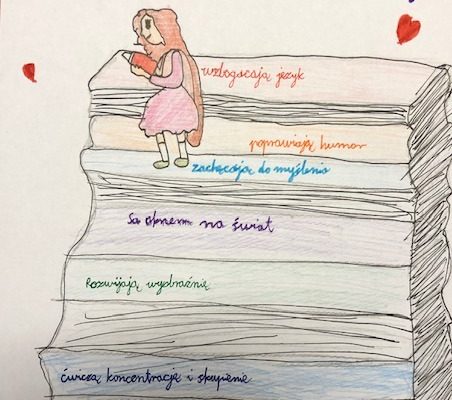 wzbogacają język
poprawiają humor
zachęcają do myślenia
Są oknem na świat
Rozwijają wyobraźnię
ćwiczą koncentrację i skupienie